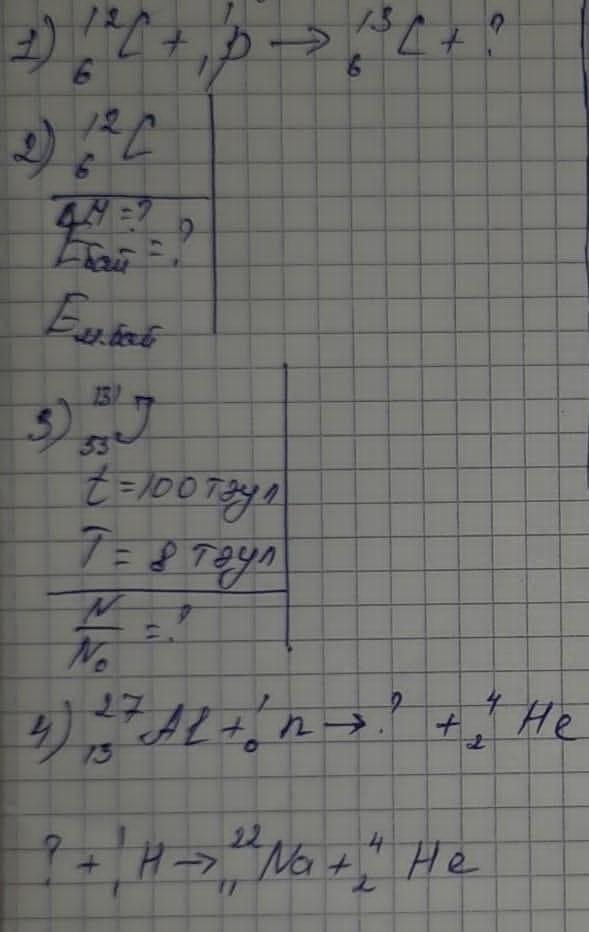 1) ¹²₆C + ¹₁p → ¹³₆C + ?
2) ¹²₆C
ΔM = ?
Eбай = ?
Eм.бай
3) ¹³¹₅₃J
t = 100 тәул
T = 8 тәул
N/N₀ = ?
4) ²⁷₁₃Al + ¹₀n → ? + ⁴₂He
? + ¹₁H → ²²₁₁Na + ⁴₂He